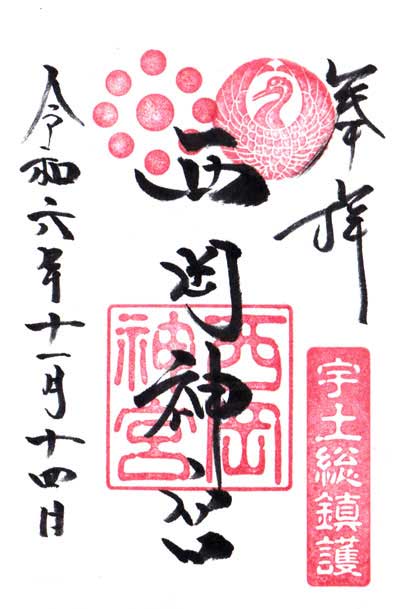 奉拝
宇土総鎮護
西岡神宮
西岡
神宮
令和六年十一月十四日